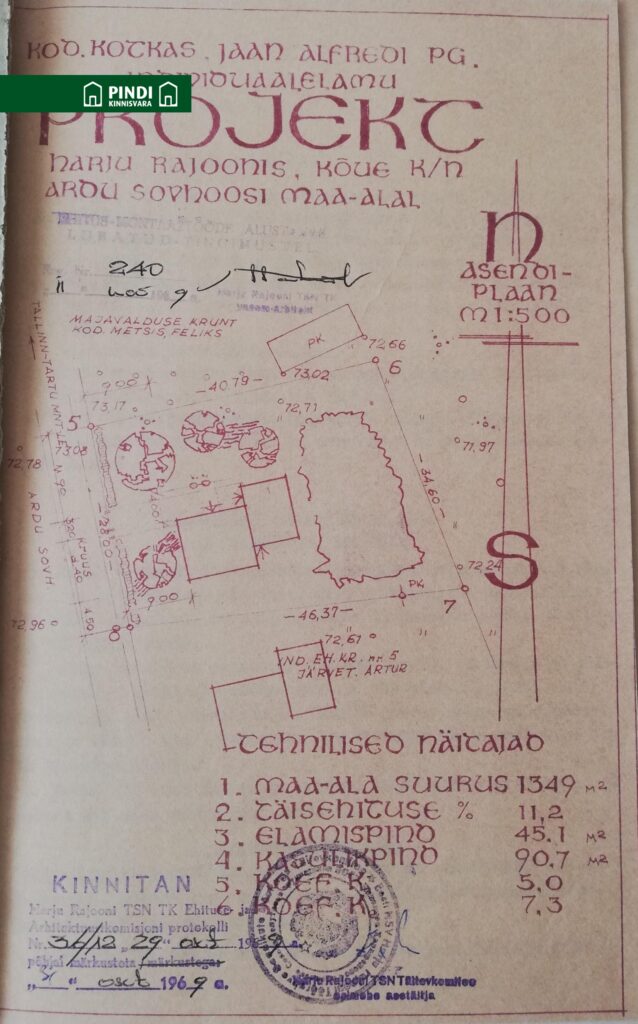 KOD. KOTKAS, JAAN ALFREDI PG.
INDIVIDUAALELAMU
PINDI
KINNISVARA
PROJEKT
HARJU RAJOONIS, KÕUE K/N
ARDU SOVHOOSI MAA-ALAL
EHITUS-MONTAAŽTÖÖDE ALUST
LUBATUD TINGIMUSTEL
240
196 9 a.
Harju Rajooni TSN TK
N
ASENDI-
PLAAN
M 1:500
MAJAVALDUSE KRUNT
KOD. METSIS, FELIKS
PK
72,66
6
73,02
40,79
9,00
TALLINN-TARTU MNT
73,17
72,71
5
73,08
71,97
72,78
ARDU SOVH
34,60
28,00
4,50
S
72,24
9,00
PK
7
46,37
72,96
8
72,61
IND. EH. KR. nr. 5
JÄRVET. ARTUR
TEHNILISED NÄITAJAD
1. MAA-ALA SUURUS 1349 M2
2. TÄISEHITUSE % 11,2
3. ELAMISPIND 45.1 M2
4. KASULIKPIND 90,7 M2
5. KOEF. K 5,0
6. KOEF. K 7,3
KINNITAN
Harju Rajooni TSN TK Ehitus- ja
Arhitektuurikomisjoni protokolli
Nr. 36/12 „29" okt 196 9 a.
põhjal märkusteta / märkustega
" okt 196 9 a.
Harju Rajooni TSN Täitevkomitee
esimehe asetäitja